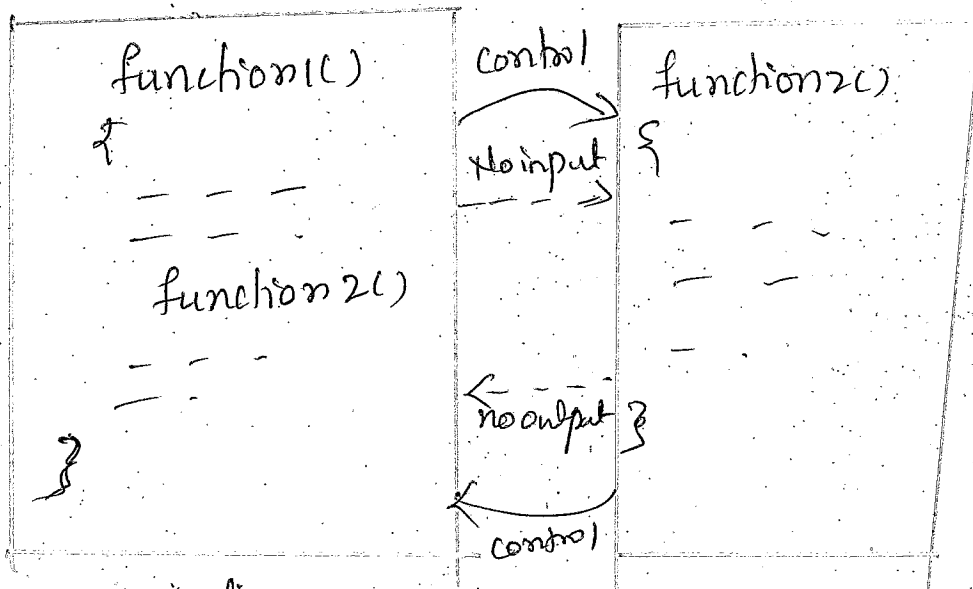 function1()
{
function2()
}
control
No input
no output
control
function2()
{
}